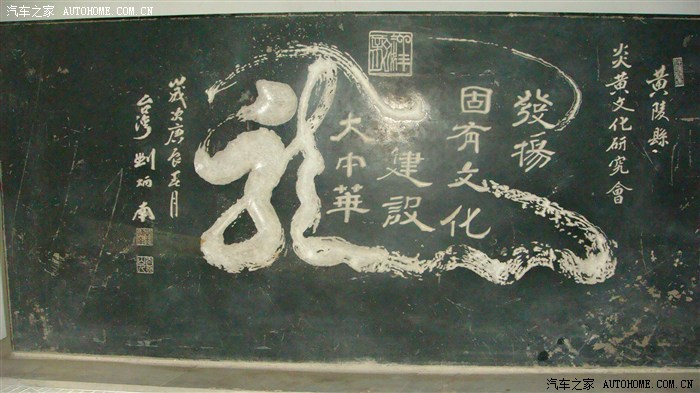 汽车之家 AUTOHOME.COM.CN
黄陵縣
炎黄文化研究會
發揚
固有文化
建設
大中華
龍
歲次庚辰五月
台灣 劉炳南
汽车之家 AUTOHOME.COM.CN